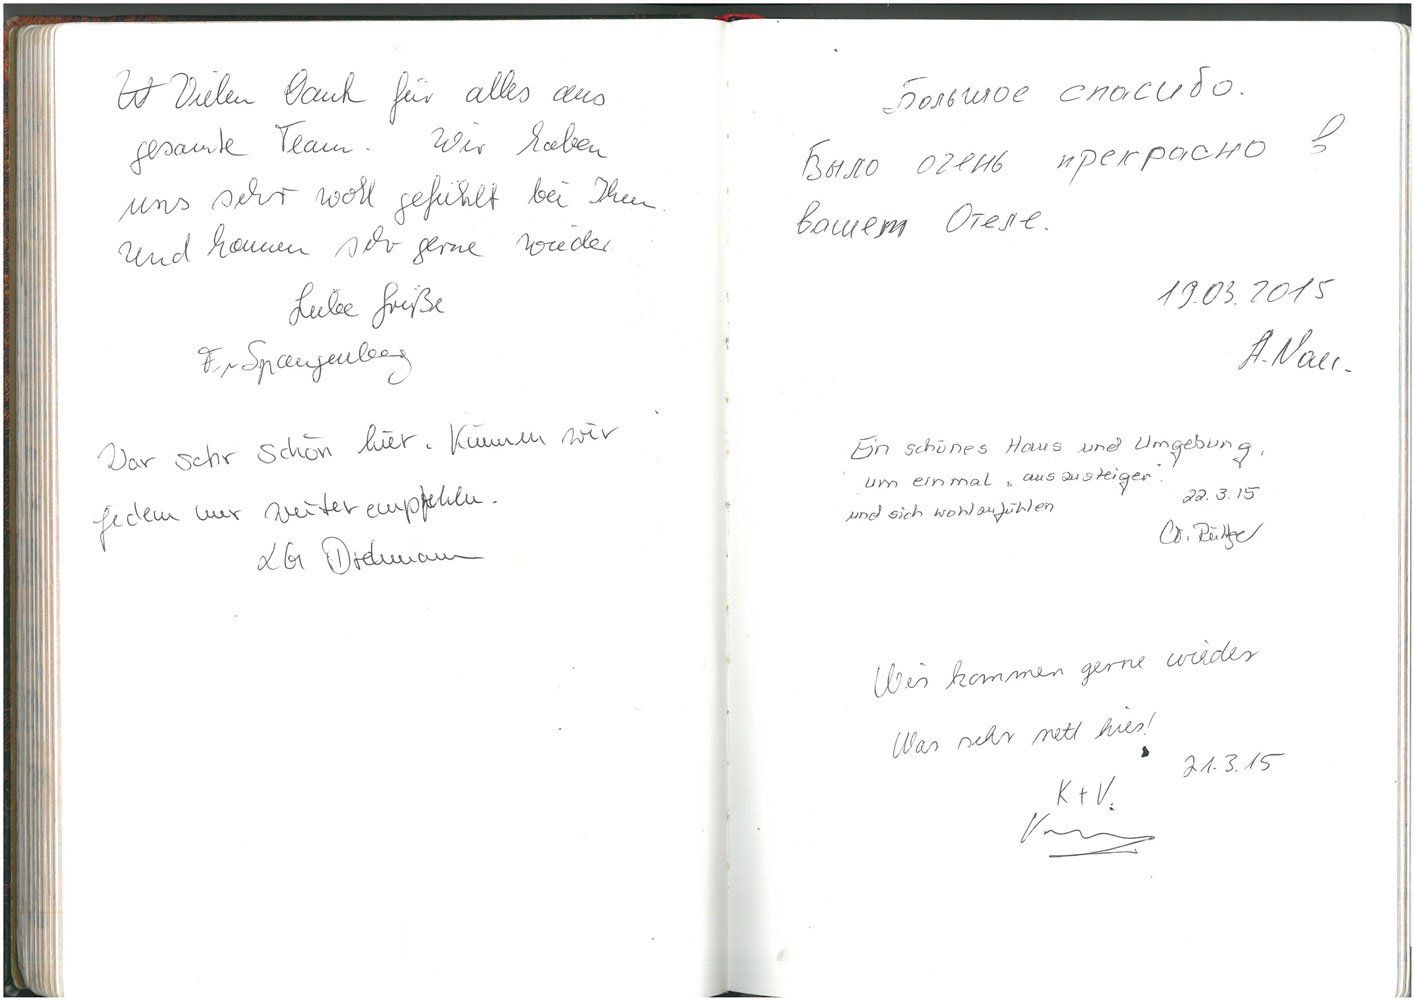 Vielen Dank für alles ans
gesamte Team. Wir haben
uns sehr wohl gefühlt bei Ihnen.
Und kommen sehr gerne wieder
Liebe Grüße
F. Spangenberg
War sehr schön hier. Können wir
jedem nur weiterempfehlen.
LG
Большое спасибо.
Было очень прекрасно в
вашем Отеле.
19.03.2015
Ein schönes Haus und Umgebung,
um einmal „auszusteigen"
und sich wohlzufühlen
22.3.15
Wir kommen gerne wieder
War sehr nett hier!
21.3.15
K + V.